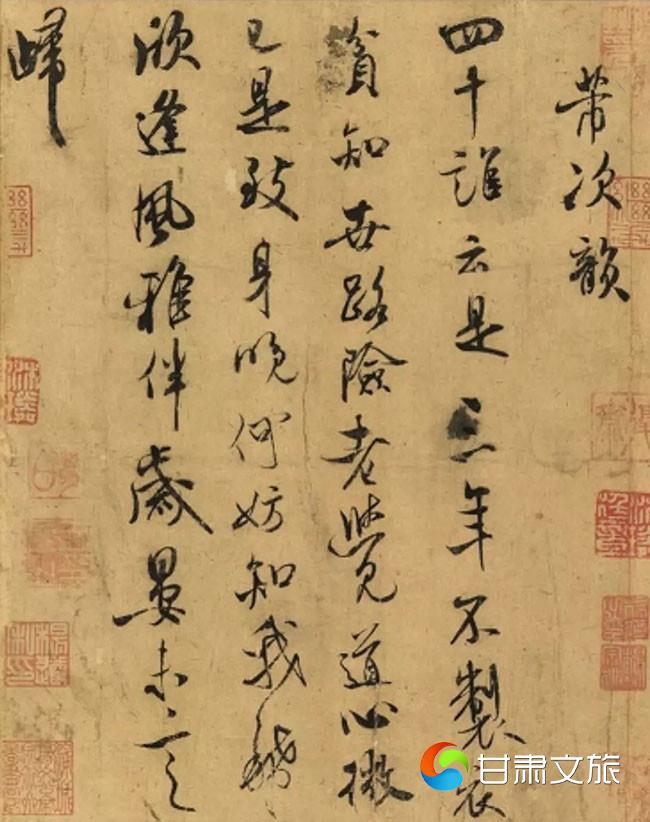 芾次韻
四十誰云是三年不製衣
貧知世路險老覺道心微
已是致身晚何妨知我稀
欣逢風雅伴歲晏未言
歸
甘肃文旅